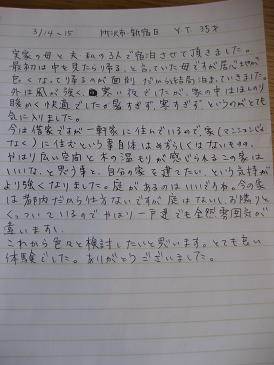 3/14~15 所沢市・新宿日 Y.T. 35才
実家の母と夫・私の3人で宿泊させて頂きました。
最初は中を見たら帰る、と言っていた母ですが居心地が
良くなって帰るのが面倒だから結局泊まっていきました。
外は風が強く、寒い夜でしたが、家の中はほんのり
暖かく快適でしたが暑すぎず、寒すぎず、というのがとても
気に入りました。
今は借家ですが一軒家に住んでいるので家(マンションじゃ
なく)に住むという事自体はめずらしくはないものの、
やはり広い空間と木の温もりが感じられるこの家は
いいな、と思う事と、自分の家を建てたい、という気持が
より強くなりました。庭があるのはいいですね。今の家
は都内だから仕方ないですが庭はないし、お隣りと
くっついているのでやはり一戸建でも全然雰囲気が
違いますし、
これから色々と検討したいと思います。とても良い
体験でした。ありがとうございました。